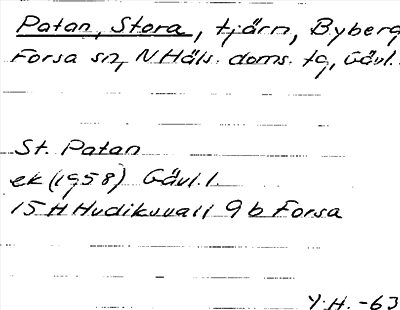 Patan, Stora, tjärn, Byberg
Forsa sn, N Häls. doms. tg, Gävl.
St. Patan
ek (1958) Gävl. l.
15 H Hudiksvall 9 b Forsa
Y.H. -63